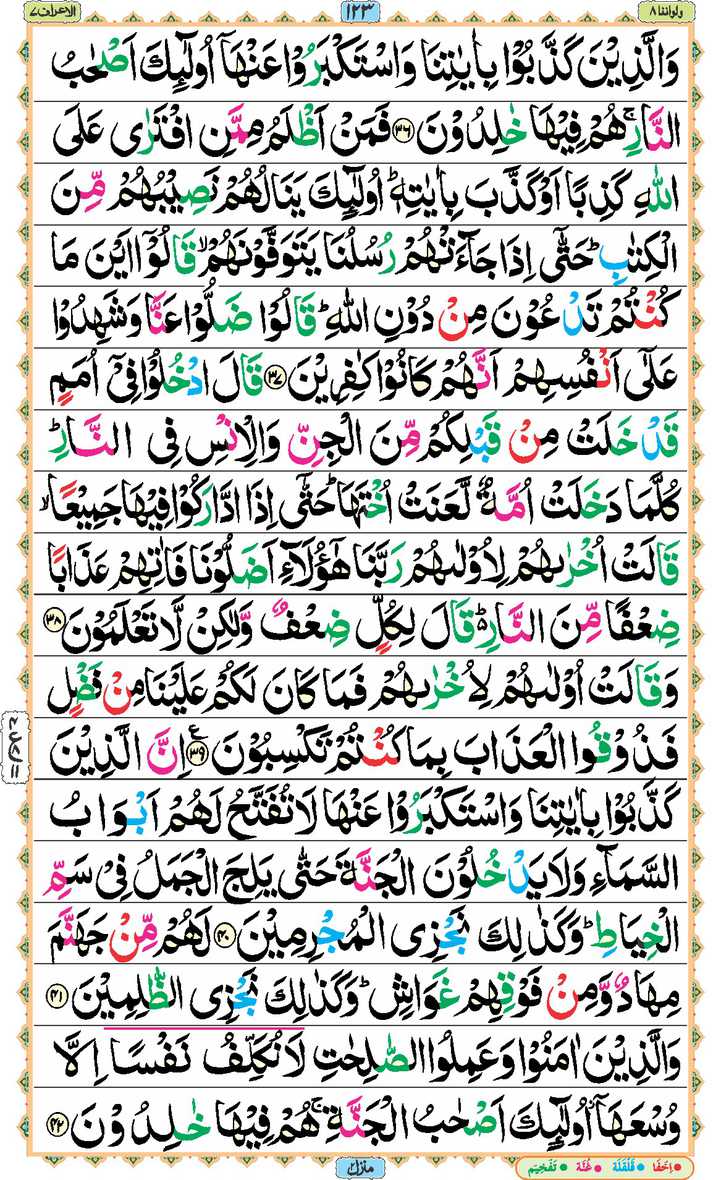 ولواننا ٨
١٢٣
الاعراف ٧
وَالَّذِیْنَ كَذَّبُوْا بِاٰیٰتِنَا وَاسْتَكْبَرُوْا عَنْهَاۤ اُولٰٓىِٕكَ اَصْحٰبُ
النَّارِ ۚ هُمْ فِیْهَا خٰلِدُوْنَ ﴿۳۶﴾ فَمَنْ اَظْلَمُ مِمَّنِ افْتَرٰی عَلَی
اللّٰهِ كَذِبًا اَوْ كَذَّبَ بِاٰیٰتِهٖ ؕ اُولٰٓىِٕكَ یَنَالُهُمْ نَصِیْبُهُمْ مِّنَ
الْكِتٰبِ ؕ حَتّٰۤی اِذَا جَآءَتْهُمْ رُسُلُنَا یَتَوَفَّوْنَهُمْ ۙ قَالُوْۤا اَیْنَ مَا
كُنْتُمْ تَدْعُوْنَ مِنْ دُوْنِ اللّٰهِ ؕ قَالُوْا ضَلُّوْا عَنَّا وَشَهِدُوْا
عَلٰۤی اَنْفُسِهِمْ اَنَّهُمْ كَانُوْا كٰفِرِیْنَ ﴿۳۷﴾ قَالَ ادْخُلُوْا فِیْۤ اُمَمٍ
قَدْ خَلَتْ مِنْ قَبْلِكُمْ مِّنَ الْجِنِّ وَالْاِنْسِ فِی النَّارِ ؕ
كُلَّمَا دَخَلَتْ اُمَّةٌ لَّعَنَتْ اُخْتَهَا ؕ حَتّٰۤی اِذَا ادَّارَكُوْا فِیْهَا جَمِیْعًا ۙ
قَالَتْ اُخْرٰىهُمْ لِاُوْلٰىهُمْ رَبَّنَا هٰۤؤُلَآءِ اَضَلُّوْنَا فَاٰتِهِمْ عَذَابًا
ضِعْفًا مِّنَ النَّارِ ؕ۬ قَالَ لِكُلٍّ ضِعْفٌ وَّلٰكِنْ لَّا تَعْلَمُوْنَ ﴿۳۸﴾
وَقَالَتْ اُوْلٰىهُمْ لِاُخْرٰىهُمْ فَمَا كَانَ لَكُمْ عَلَیْنَا مِنْ فَضْلٍ
فَذُوْقُوا الْعَذَابَ بِمَا كُنْتُمْ تَكْسِبُوْنَ ﴿۳۹﴾ ع اِنَّ الَّذِیْنَ
كَذَّبُوْا بِاٰیٰتِنَا وَاسْتَكْبَرُوْا عَنْهَا لَا تُفَتَّحُ لَهُمْ اَبْوَابُ
السَّمَآءِ وَلَا یَدْخُلُوْنَ الْجَنَّةَ حَتّٰی یَلِجَ الْجَمَلُ فِیْ سَمِّ
الْخِیَاطِ ؕ وَكَذٰلِكَ نَجْزِی الْمُجْرِمِیْنَ ﴿۴۰﴾ لَهُمْ مِّنْ جَهَنَّمَ
مِهَادٌ وَّمِنْ فَوْقِهِمْ غَوَاشٍ ؕ وَكَذٰلِكَ نَجْزِی الظّٰلِمِیْنَ ﴿۴۱﴾
وَالَّذِیْنَ اٰمَنُوْا وَعَمِلُوا الصّٰلِحٰتِ لَا نُكَلِّفُ نَفْسًا اِلَّا
وُسْعَهَاۤ ؗ اُولٰٓىِٕكَ اَصْحٰبُ الْجَنَّةِ ۚ هُمْ فِیْهَا خٰلِدُوْنَ ﴿۴۲﴾
منزل ٢
اِخْفَا قَلْقَلَه غُنَّه تَفْخِیْم